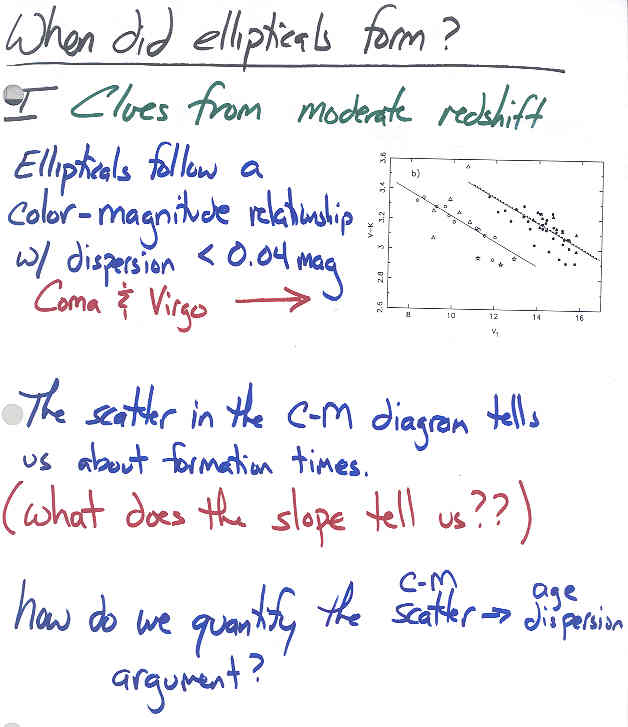 When did ellipticals form?
I Clues from moderate redshift
Ellipticals follow a
color-magnitude relationship
w/ dispersion < 0.04 mag
Coma & Virgo →
b)
V-K
3.6
3.4
3.2
3
2.8
2.6
8 10 12 14 16
V_T
The scatter in the C-M diagram tells
us about formation times.
(what does the slope tell us??)
how do we quantify the C-M scatter → age dispersion
argument?